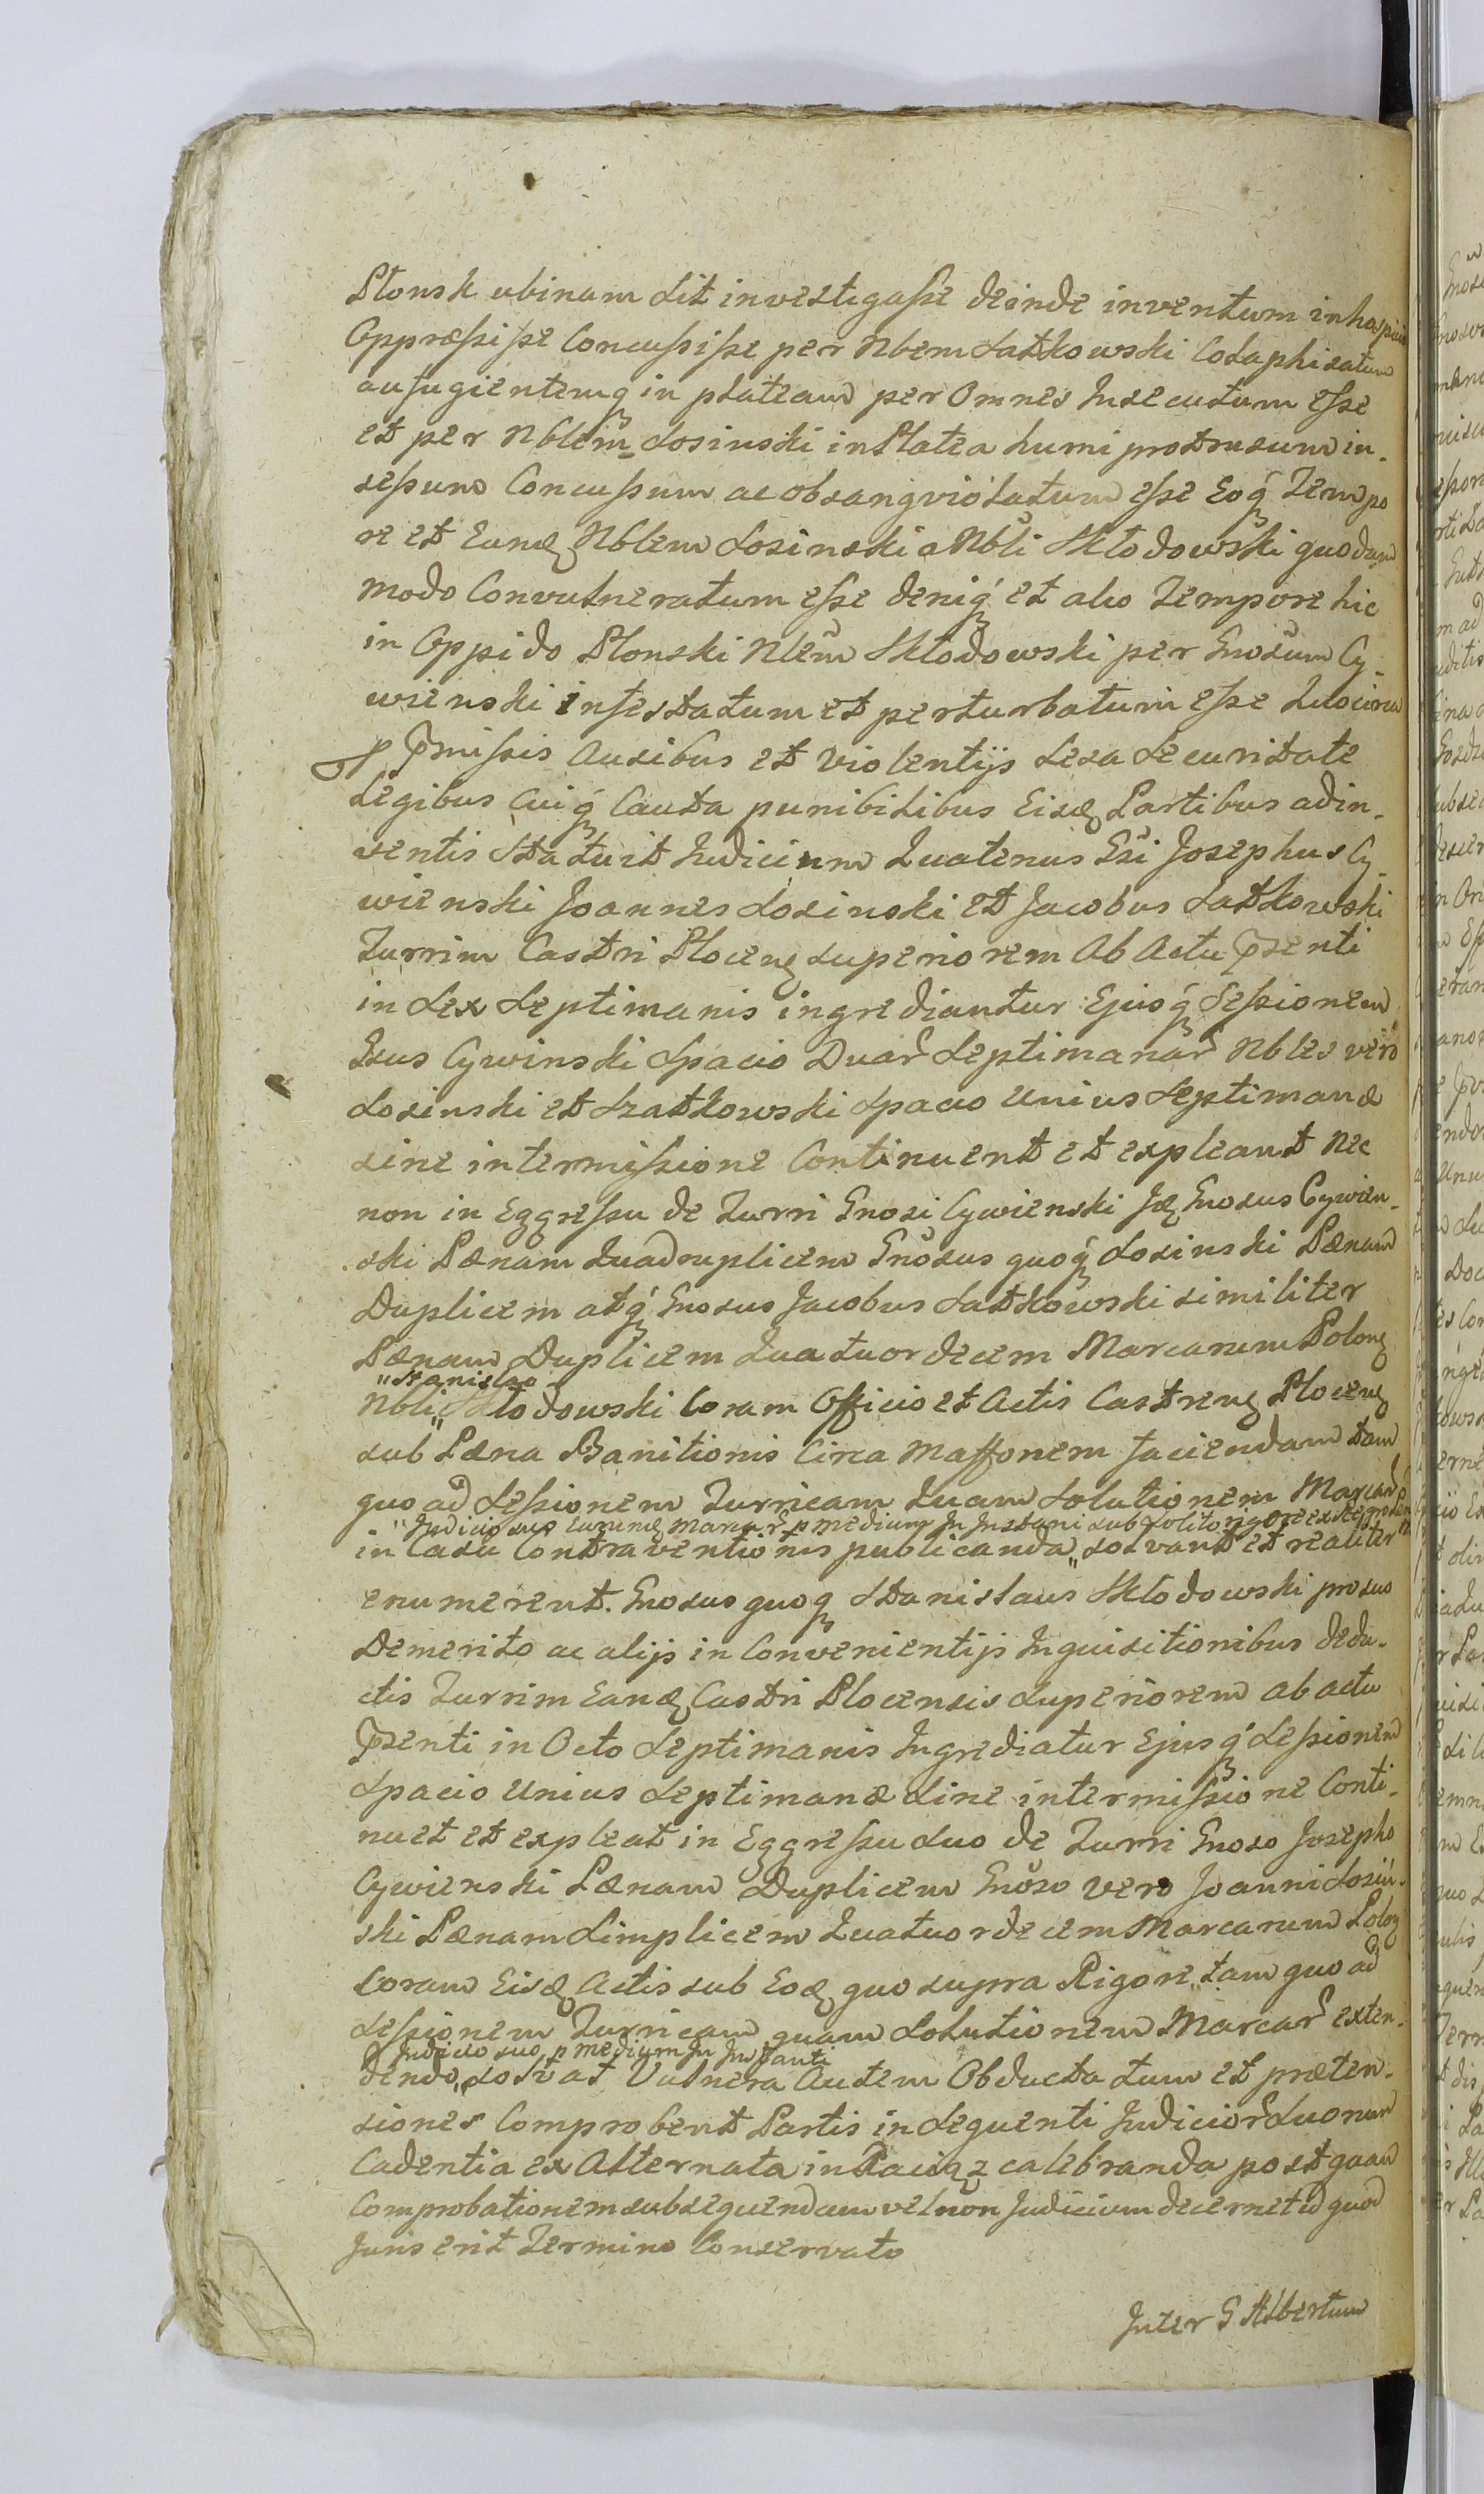 Płonsk ubinam sit investigasse deinde inventum in hospicio
Oppræssisse Concussisse per Nblem Łatkowski Colaphisatum
aufugientemq́ in plateam per Omnes Insecutum esse
et per Nblem Łosinski in Platea humi prostrusum in-
sessum Concussum ac obsangviolatum esse Eoq́ Tempo
re et Eund Nblem Łosinski a Nbli Skłodowski quodam
modo Convulneratum esse deniq́ et alio Tempore hic
in Oppido Płonski Nblem Skłodowski per Gnosum Cy-
wienski infestatum et perturbatum esse Quocirca
p p̃missis Ausibus et violentijs Lesa Securitate
Legibus Cuiq́ Cauta punibilibus Eisd Partibus adin-
ventis Statuit Judicium Quatenus Gsi Josephus Cy-
wienski Joannes Łosinski et Jacobus Łatkowski
Turrim Castri Plocen superiorem Ab Actu p̃senti
in Sex Septimanis ingrediantur Ejusq́ Sessionem
Gsus Cywinski Spacio Duar Septimanar Nbles vero
Łosinski et Szatkowski Spacio Unius Septimanæ
sine intermissione Continuent et expleant nec
non in Eggressu de Turri Gnosi Cywienski Id Gnosus Cywien-
ski Pænam Quadruplicem Gnosus quoq́ Łosinski Pænam
Duplicem atq́ Gnosus Jacobus Łatkowski similiter
Pænam Duplicem Quatuordecem Marcarum Polon
"Stanislao
Nbli" Skłodowski Coram Officio et Actis Castren Plocen
sub Pæna Banitionis Circa Maffonem faciendam tam
quo ad Sessionem Turricam Quam Solutionem Marcar
" Judicio suo earund marcar p medium In Instanti sub solito rigore
in Casu Contraventionis publicanda" solvant et realiter
enumerent. Gnosus quoq́ Stanislaus Skłodowski pro suo
Demerito ac alijs inConvenientijs Inquisitionibus dedu-
ctis Turrim Eand Castri Plocensis Superiorem ab actu
p̃senti in Octo Septimanis Ingrediatur Ejusq́ Sessionem
Spacio Unius Septimanæ Sine intermissione Conti-
nuet et expleat in Eggressu Suo de Turri Gnoso Josepho
Cywienski Pænam Duplicem Gnoso vero Joanni Łosin-
ski Pænam Simplicem Quatuordecem Marcarum Polon
Coram Eisd Actis sub Eod quo supra Rigore, tam quo ad
Sessionem Turricam quam Solutionem Marcar exten-
" Judicio suo p medium In Instanti
dendo, "solvat Vulnera Autem Obducta tum et præten-
siones Comprobent Partis in Sequenti Judicior Suorum
Cadentia ex Alternata in Raciąz calebranda post quam
Comprobationem subsequendam vel non Judicium decernet id quod
Juris erit Termino Conservato
Inter G Albertum